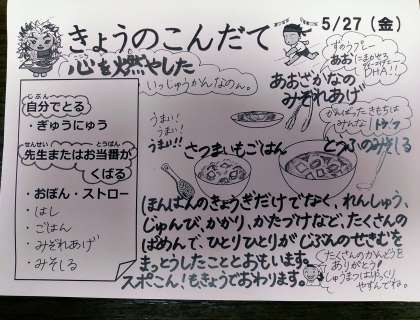 きょうのこんだて
5/27（金）
心を燃やした
いっしゅうかんなのん。
じぶん
自分でとる
・ぎゅうにゅう
せんせい　とうばん
先生またはお当番が
くばる
・おぼん・ストロー
・はし
・ごはん
・みぞれあげ
・みそしる
あおざかなの
みぞれあげ
あお
DHA!!
がんばったきもちは
みんな
とうふのみそしる
うまい!
うまい!
うまい!!
さつまいもごはん
ほんばんのきょうぎだけでなく、れんしゅう、
じゅんび、かかり、かたづけなど、たくさんの
ばめんで、ひとりひとりがじぶんのせきむを
まっとうしたこととおもいます。
スポこん！もきょうでおわります。
たくさんのかんどうを
ありがとう!
しゅうまつはゆっくり
やすんでね。